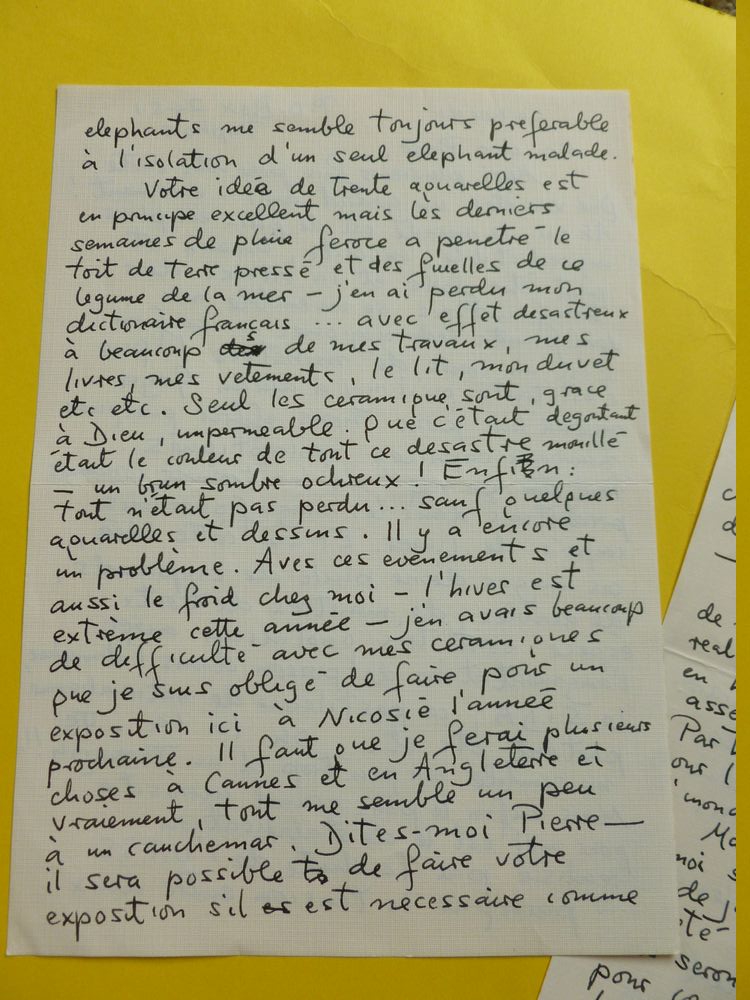 elephants me semble toujours preferable
à l'isolation d'un seul elephant malade.
Votre idée de trente aquarelles est
en principe excellent mais les derniers
semaines de pluie feroce a penetré le
toit de terre pressé et des fuelles de ce
legume de la mer – j'en ai perdu mon
dictionaire français ... avec effet desastreux
à beaucoup de mes travaux, mes
livres, mes vetements, le lit, mon duvet
etc etc. Seul les ceramique sont, grace
à Dieu, impermeable. Que c'était degoutant
était le couleur de tout ce desastre mouillé
– un brun sombre ochreux! Enfin:
tout n'était pas perdu... sauf quelques
aquarelles et dessins. Il y a encore
un problème. Aves ces evenements et
aussi le froid chez moi – l'hives est
extrème cette année – j'en avais beaucoup
de difficulté avec mes ceramiques
que je suis obligé de faire pour un
exposition ici à Nicosie l'année
prochaine. Il faut que je ferai plusieurs
choses à Cannes et en Angleterre et
vraiement, tout me semble un peu
à un cauchemar. Dites-moi Pierre –
il sera possible de faire votre
exposition s'il est necessaire comme
de
real
en
asse
Par
our l
Mo
moi s
de j
ité
seron
pour